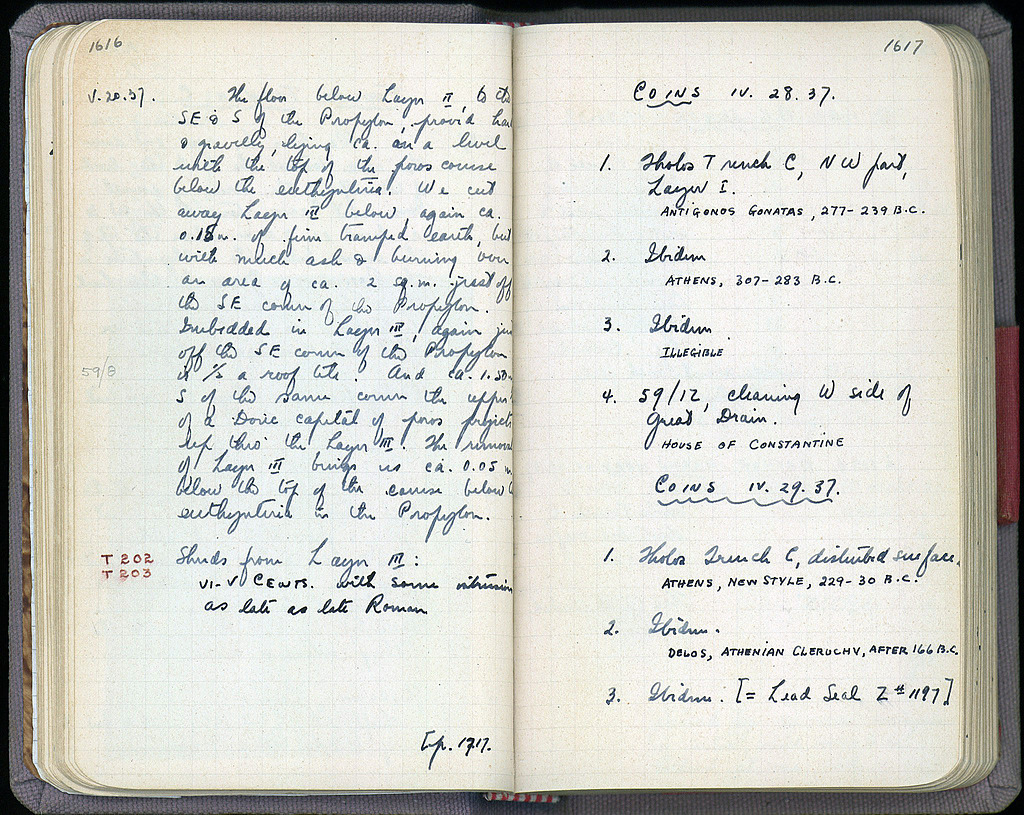 1616
V.20.37. The floor below Layer II, to the
SE & S of the Propylon, proved hard
& gravelly, lying ca. on a level
with the top of the poros course
below the euthynteria. We cut
away Layer III below, again ca.
0.15 m. of firm tramped earth, but
with much ash & burning over
an area of ca. 2 sq.m. just off
the SE corner of the Propylon.
Imbedded in Layer III, again just
off the SE corner of the Propylon
59/8 is 1/2 a roof tile. And ca. 1.50 m
S of the same corner the upper
of a Doric capital of poros projects
up thro' the Layer III. The removal
of Layer III brings us ca. 0.05 m
below the top of the course below
euthynteria in the Propylon.
T 202 Sherds from Layer III:
T 203
VI-V Cents. with some intrusion
as late as late Roman
Cf. p. 1717.
1617
COINS IV. 28. 37.
1. Tholos Trench C, NW part,
Layer I.
ANTIGONOS GONATAS, 277-239 B.C.
2. Ibidem
ATHENS, 307-283 B.C.
3. Ibidem
ILLEGIBLE
4. 59/12, cleaning W side of
Great Drain.
HOUSE OF CONSTANTINE
COINS IV. 29. 37.
1. Tholos Trench C, disturbed surface.
ATHENS, NEW STYLE, 229-30 B.C.
2. Ibidem.
DELOS, ATHENIAN CLERUCHY, AFTER 166 B.C.
3. Ibidem. [= Lead Seal Z # 1197]